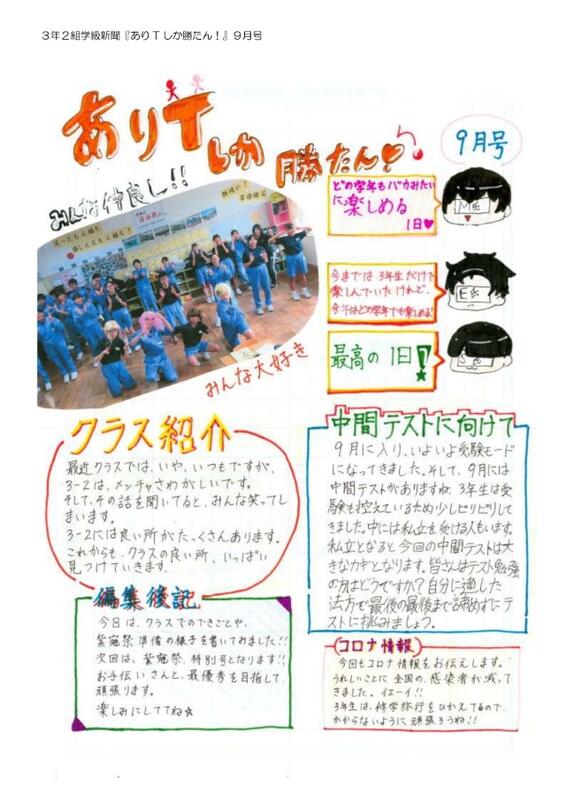 3年2組学級新聞『ありTしか勝たん！』9月号
ありTしか勝たん!
9月号
みんな仲良し!!
みんな大好き
どの学年もバカみたい
に楽しめる
1日♥
今までは3年生だけで
楽しんでいたけれど、
今年はどの学年でも楽しめる!
最高の1日!
クラス紹介
最近クラスでは、いや、いつもですが、
3-2は、メッチャさわがしいです。
そして、その話を聞いてると、みんな笑ってし
まいます。
3-2には良い所がたっくさんあります。
これからも、クラスの良い所、いっぱい
見つけていきます。
中間テストに向けて
9月に入り、いよいよ受験モード
になってきました。そして、9月には
中間テストがありますね。3年生は受
験も控えているため少しピリピリして
きました。中には私立を受ける人もいます。
私立となると今回の中間テストは大
きなカギとなります。皆さんはテスト勉強
の方はどうですか?自分に適した
法方で最後の最後まで諦めずにテ
ストに挑みましょう。
編集後記
今日は、クラスでのできごとや、
紫宛祭準備の様子を書いてみました!!
次回は、紫宛祭、特別号となります!!
お手伝いさんと、最優秀を目指して、
頑張ります。
楽しみにしててね☆
コロナ情報
今回もコロナ情報をお伝えします。
うれしいことに全国の、感染者が減って
きました。イエーイ!!
3年生は、修学旅行をひかえてるので、
かからないように頑張ろうね!!